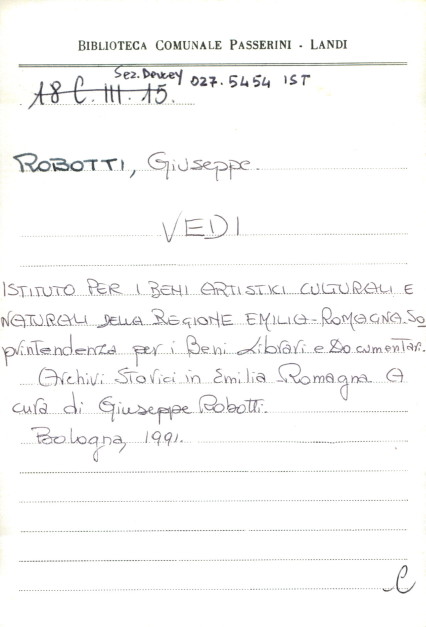 BIBLIOTECA COMUNALE PASSERINI - LANDI
Sez. Dewey 027.5454 IST
18 C. III. 15.
ROBOTTI, Giuseppe.
VEDI
ISTITUTO PER I BENI ARTISTICI CULTURALI E
NATURALI DELLA REGIONE EMILIA-ROMAGNA. So
printendenza per i Beni Librari e Documentari.
Archivi Storici in Emilia Romagna. A
cura di Giuseppe Robotti.
Bologna, 1991.